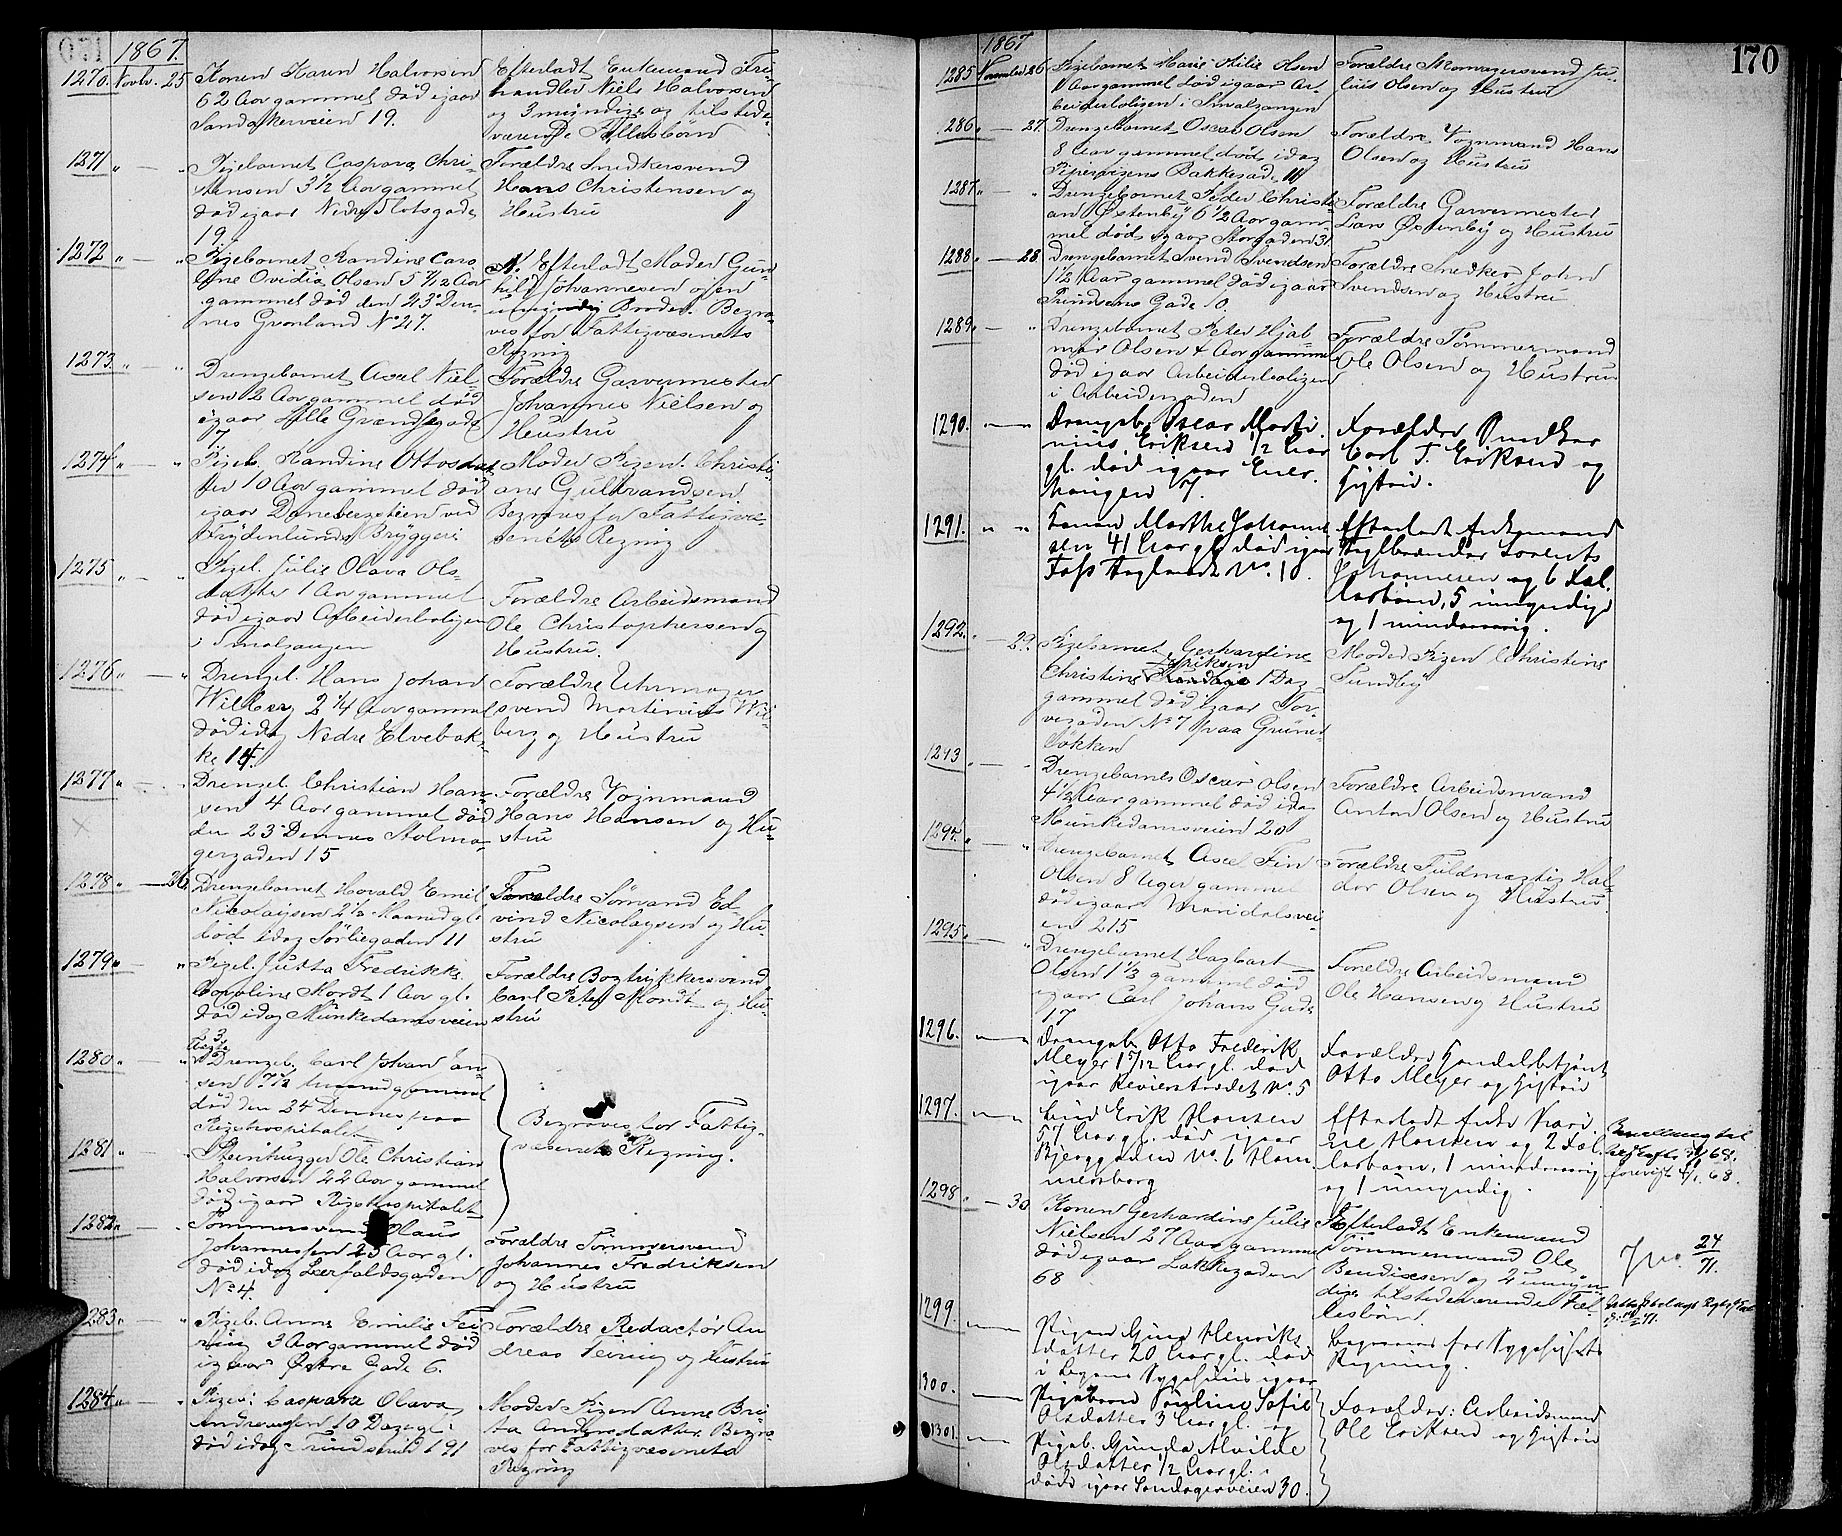 1867.
1270. Novbr. 25 Konen Karen Halvorsen
62 Aar gammel død igaar
Sandakerveien 19.
Efterladt Enkemand Fri-
handler Niels Halvorsen
og 3 myndige og tilstede-
værende Fællesbörn
1271 " — " Pigebarnet Caspara Chri-
stensen 3 1/2 Aar gammel
død igaar Nedre Slotsgade
19
Forældre Snedkersvend
Hans Christensen og
Hustru
1272 " — " Pigebarnet Randine Caro-
line Ovidia Olsen 5 7/12 Aar
gammel død den 23de Den-
nes Grønland No 27.
Efterladt Moder Gun-
hild Johannesen og en
umyndig Broder. Begra-
ves for Fattigvæsenets
Regning
1273. " — " Drengebarnet Axel Niel-
sen 2 Aar gammel død
igaar Lille Grændsegade
7
Forældre Garvermester
Johannes Nielsen og
Hustru
1274 " — " Pigeb. Randine Ottosdat-
ter 10 Aar gammel død
igaar ved
Frydenlunds Bryggeri
Moder Pigen Christi-
ane Gulbrandsen.
Begraves for Fattigvæ-
senets Regning
1275 " — " Pigeb. Julie Olava Ols-
datter 1 Aar gammel
død igaar Arbeiderboligen
i Smalgangen
Forældre Arbeidsmand
Ole Christophersen og
Hustru.
1276 " — " Drengeb. Hans Johan
Wilberg 2 1/4 Aar gammel
død idag Nedre Elvebak-
ke 14.
Forældre Uhrmager
svend Martinius Wil-
berg og Hustru
1277 " — " Drengeb. Christian Han-
sen 4 Aar gammel død
den 23de Dennes Holma-
gergaden 15
Forældre Vognmand
Hans Hansen og Hu-
stru
1278 " — 26. Drengebarnet Harald Emil
Nicolaysen 2 1/2 Maaned gl.
død idag Sørliegaden 11
Forældre Sömand Ed-
vind Nicolaysen og Hu-
stru
1279 " — " Pigeb. Jutta Fredrikke
Caroline Mordt 1 Aar gl.
død idag Munkedamsveien
3
Forældre Bogtrykkersvend
Carl Peter Mordt og Hu-
stru
1280 " — " Drengeb. Carl Johan Jan-
sen 7 1/2 gammel
død den 24 Dennes paa
Rigshospitalet
1281 " — " Steinhugger Ole Christian
Halvorsen 22 Aar gammel
død igaar Rigshospitalet
Begraves for Fattig-
væsenets Regning.
1282 " — " Tømmersvend Olaus
Johannessen 25 Aar gl.
død idag Leerfaldsgaden
No 4.
Forældre Tømmersvend
Johannes Fredriksen
og Hustru
1283 " — " Pigeb. Anna Emilie Fei-
ring 3 Aar gammel død
igaar Østre Gade 6.
Forældre Redactør An-
dreas Feiring og Hustru
1284 " — " Pigeb: Caspara Olava
Andreassen 10 Dage gl.
død idag Trondhmv. 91
Moder Pigen Anne Bri-
ta Andersdatter Begra-
ves for Fattigvæsenets
Regning
170
1867
1285 November 26 Pigebarnet Marie Milie Olsen
1 Aar gammel død igaar Ar-
beiderboligen i Smalgangen
Forældre Ju-
lius Olsen og Hustru
286. — 27. Drengebarnet Oscar Olsen
8 Aar gammel død idag
Pipervigens Bakkegade 11
Forældre Vognmand Hans
Olsen og Hustru
1287 " " Drengebarnet Peder Christi-
an Østenby 6 1/2 Aar gam-
mel død igaar Storgaden 31
Forældre Garvermester
Lars Østenby og Hustru
1288 " — 28 Drengebarnet Svend Svendsen
1 1/2 Aar gammel død igaar
Prindsens Gade 10.
Forældre Snedker John
Svendsen og Hustru
1289. — " Drengebarnet Peter Hjal-
mar Olsen 4 Aar gammel
død igaar Arbeiderboligen
i Arbeidergaden
Forældre Tømmermand
Ole Olsen og Hustru
1290. — Drengeb. Oscar Marti-
nius Eriksen 1/2 Aar
gl. død igaar Ener-
haugen 7.
Forældre Snedker
Carl F. Eriksen og
Hustru.
1291. " " Konen Marthe Johanne-
sen 41 Aar gl. død igaar
Foss No. 10.
Efterladt Enkemand
Teglbrænder Lorents
Johannesen og 6 Fæl-
lesbørn, 5 umyndige
og 1 mindreaarig.
1292. " — 29. Pigebarnet Gerhardine
Christine Eriksen 1 Dag
gammel død igaar Tor-
vegaden No 7 paa Grüner-
løkken
Moder Pigen Christine
Sundby
1293 — Drengebarnet Oscar Olsen
4 1/2 Aar gammel død idag
Munkedamsveien 20
Forældre Arbeidsmand
Anton Olsen og Hustru
1294. — " Drengebarnet Axel Fin
Olsen 8 Uger gammel
død igaar Maridalsvei-
en 215
Forældre Fuldmægtig Hal-
dor Olsen og Hustru
1295. — " Drengebarnet Hagbart
Olsen 1 1/3 gammel død
igaar Carl Johans Gade
17
Forældre Arbeidsmand
Ole Hansen og Hustru
1296. — Drengeb. Otto Frederik
Meyer 1 5/12 Aar gl. død
igaar Revierstrædet No. 5
Forældre Handelsbetjent
Otto Meyer og Hustru
1297. — Erik Hansen
57 Aar gl. død igaar
Bjerggaden No. 6 Ham-
mersborg
Efterladt Enke Kari-
ne Hansen og 2 Fæl-
lesbørn, 1 mindreaarig
og 1 umyndig.
68.
forevist 4/1. 68.
1298 " — 30 Konen Gerhardine Julie
Nielsen 27 Aar gammel
død igaar Lakkegaden
68
Efterladt Enkemand
Tømmermand Ole
Bendixsen og 2 umyn-
dige tilstedeværende Fæl-
lesbörn.
24
71.
1299. — Pigen Gina Henriks-
datter 20 Aar gl. død
i Byens Sygehuus igaar
Begraves for Sygehusets
Regning.
1300. — Pigebarn Pauline Sofie
Olsdatter 3 Aar gl. og
1301. — Pigeb. Gunda Alvilde
Olsdatter 1/2 Aar gl.
døde igaar Sandagerveien 30.
Forældre: Arbeidsmand
Ole Eriksen og Hustru